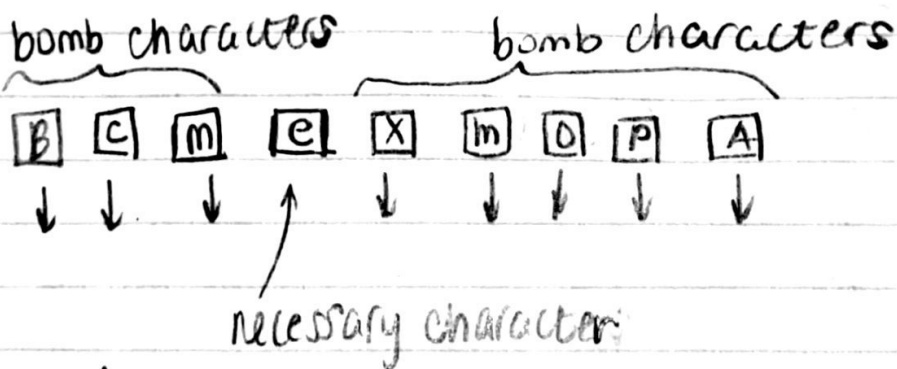 bomb characters bomb characters
B C m e X m O P A
necessary character